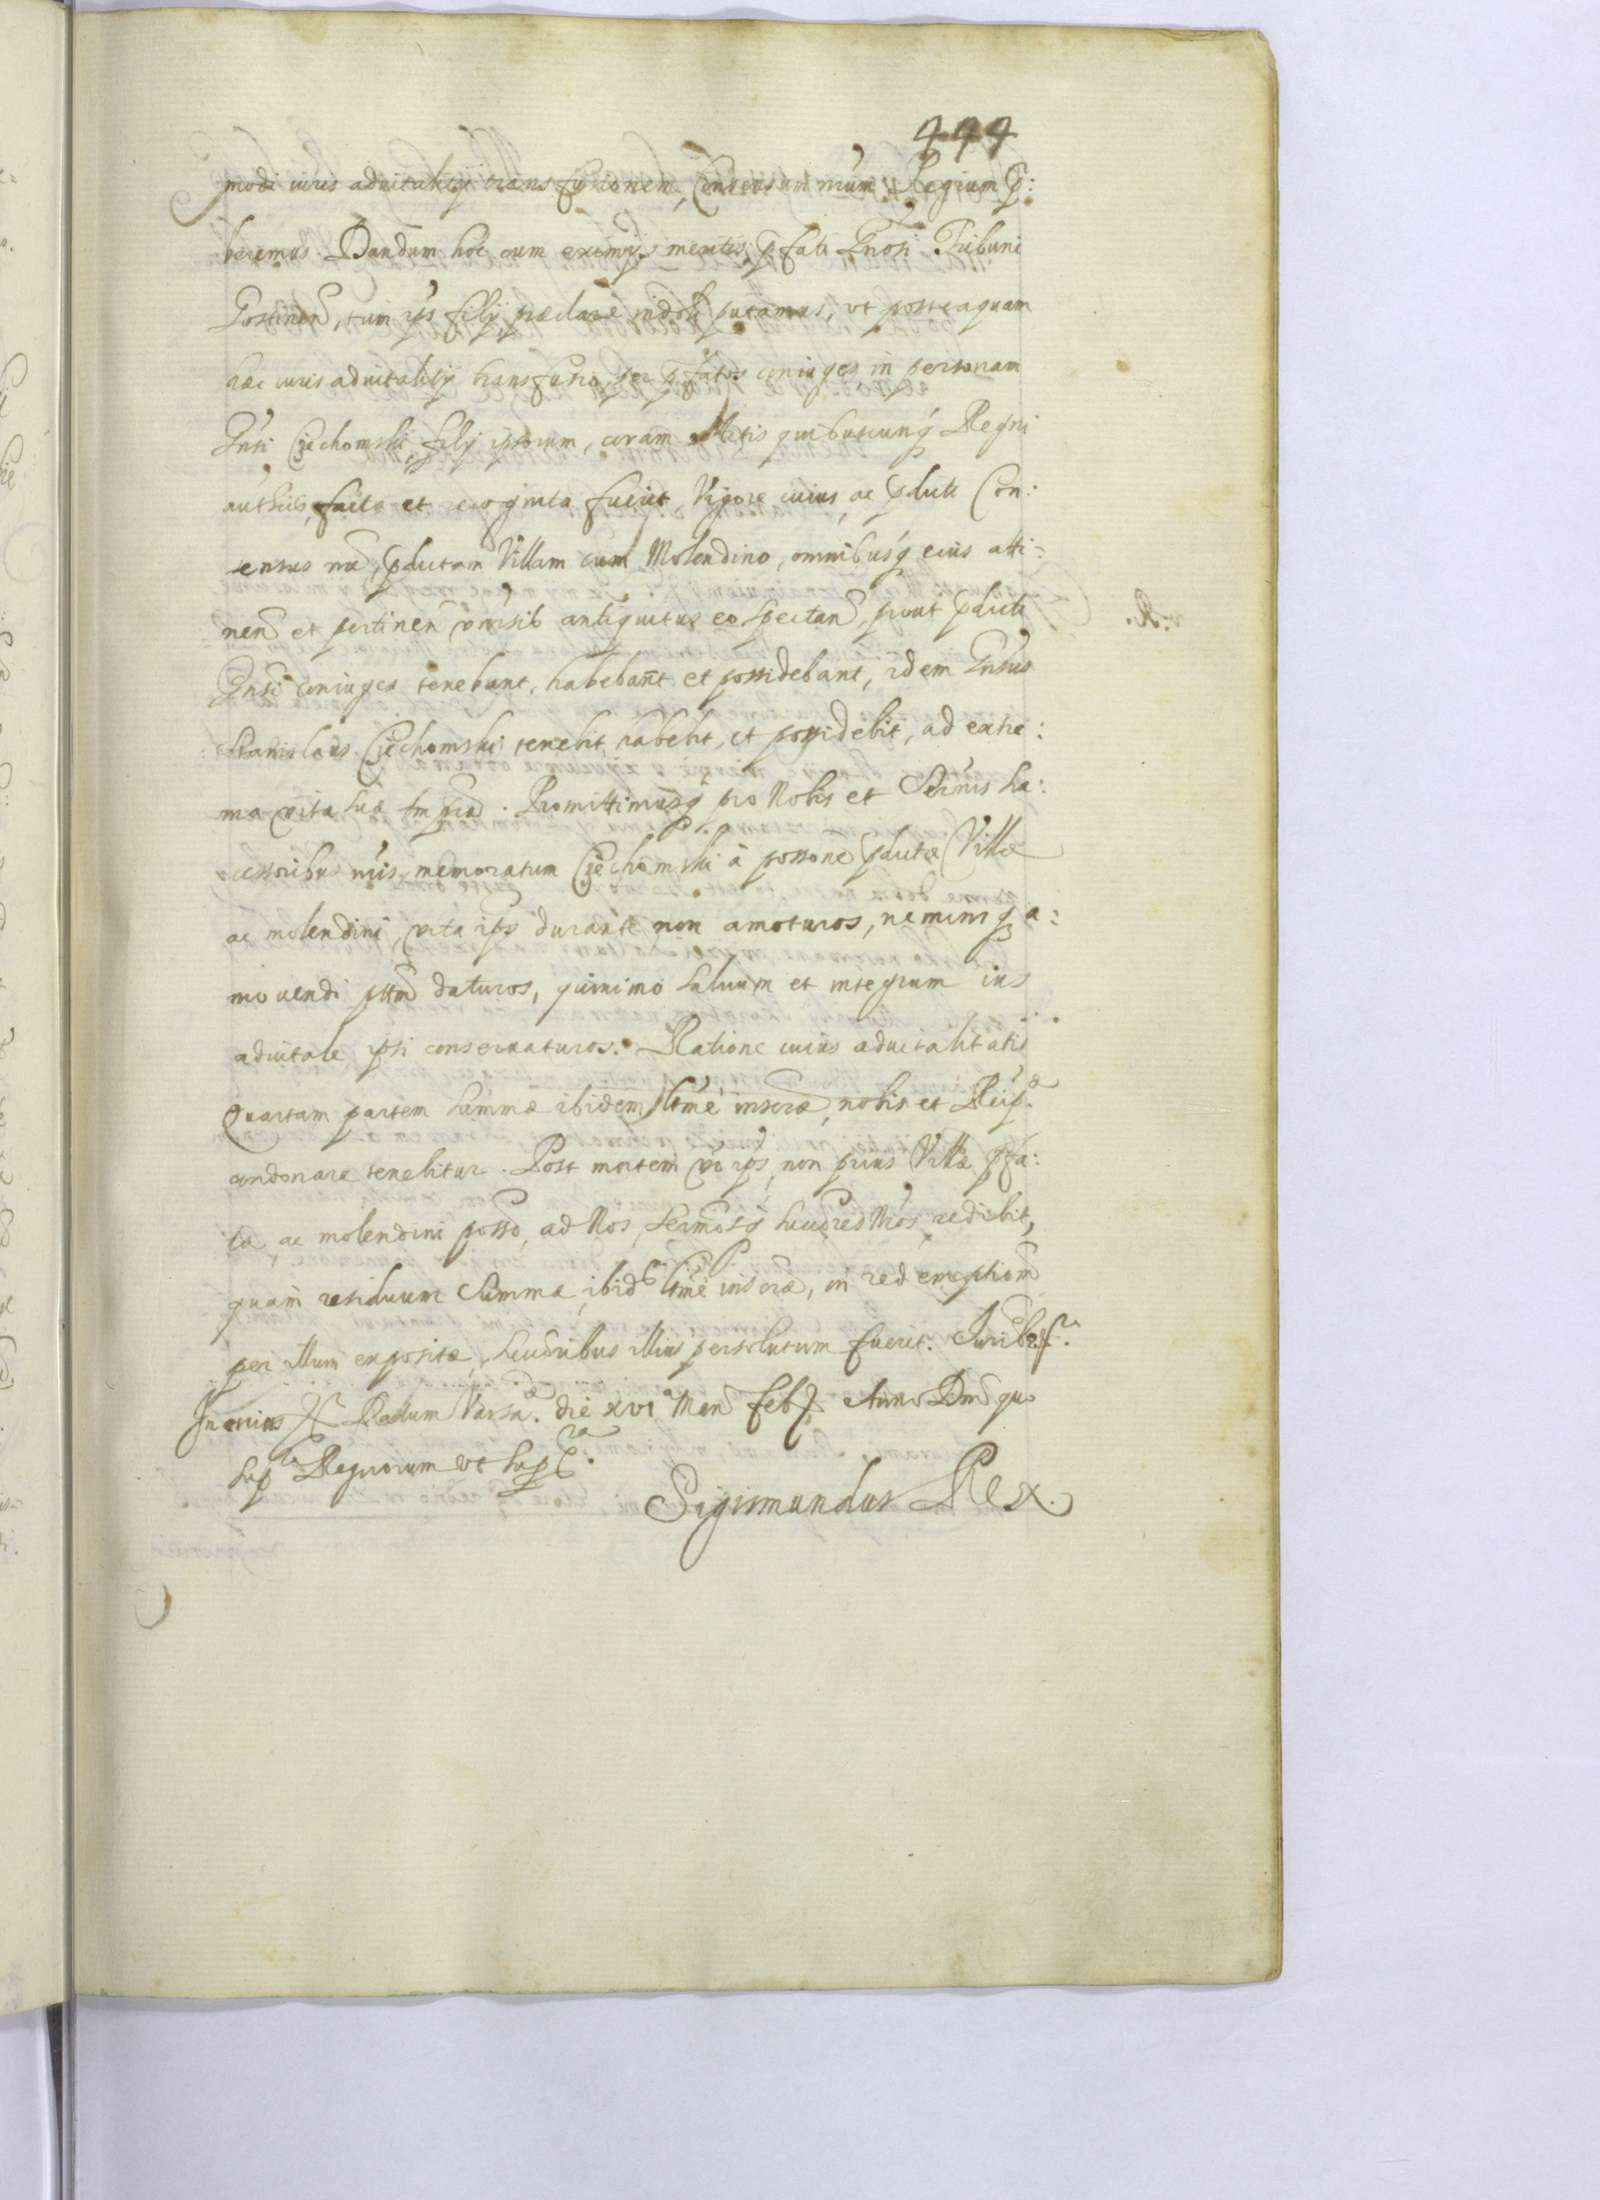 444
modi iuris aduitalitij transfusionem, Consensum nr̃um Regium p̱:
beremus. Dandum hoc cum eximijs meritis p̱fati Gnosi Tribuni
Gostinen̄, tum ip̃s filij præclaræ indoli putamus, vt posteaquam
hæc iuris aduitalitij transfusio, per p̱fatos coniuges in personam
Gnsi Cziechomski, filij ipsorum, coram Actis quibuscunq́ Regni
authcis, facta et recognita fuerit, Vigore cuius, ac p̱dicti Con:
sensus nr̃i, p̱dictam Villam cum Molendino, omnibusq́ eius atti:
nen̄ et pertinen̄ vnīsib antiquitus eo spectan̄, prout p̱dicti
Gnsi coniuges tenebant, habebant et possidebant, idem Gnsus
Stanislaus Cziechomski tenebit, habebit, et possidebit, ad extre:
ma vita suæ tm̄pra. Promittimusq́ pro Nobis et Sermis Suc:
cessoribus nr̃is, memoratum Cziechomski à possone p̱dictæ Villæ
ac molendini, vita ip̃s durante non amoturos, neminiq́ a:
mouendi p̱ttem daturos, quinimo saluum et integrum ius
aduitale ipsi conseruaturos. Ratione cuius aduitalitatis
Quartam partem Summæ ibidem ltimè inscræ, nobis et Reip.
condonare tenebitur. Post mortem vero ip̃s, non prius Villæ p̱fa:
tæ, ac molendini posso, ad Nos, Sermosq́ Succres Nr̃os redibit,
quam residuum Summæ, ibid ltimè inscræ, in redemptiom̃
per illum expositæ, Succribus illius persolutum fuerit. Iurib: R.
In cuius Datum Varsa. die XVI Men̄ Feb. Anno Dm̄ quo
sup Regnorum vt sup
Sigismundus Rex.